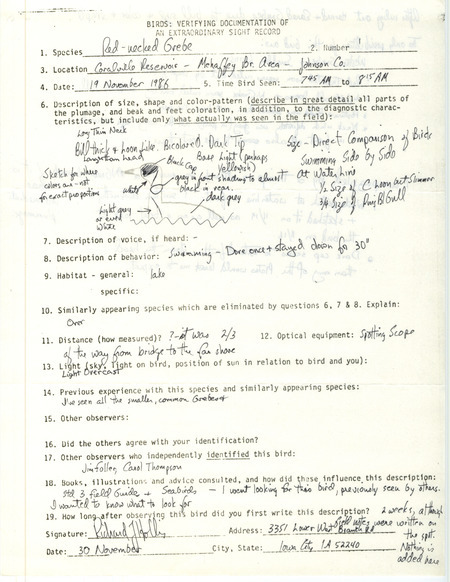 BIRDS: VERIFYING DOCUMENTATION OF
AN EXTRAORDINARY SIGHT RECORD
1. Species Red-necked Grebe 2. Number 1
3. Location Coralville Reservoir - Mehaffey Br. Area - Johnson Co.
4. Date: 19 November 1986 5. Time Bird Seen: 7:45 AM to 8:15 AM
6. Description of size, shape and color-pattern (describe in great detail all parts of
the plumage, and beak and feet coloration, in addition, to the diagnostic charac-
teristics, but include only what actually was seen in the field):
Long Thin Neck
Bill thick & Loon Like. Bicolored. Dark Tip
Longish on head
Base Light (perhaps
yellowish)
Black Cap
Sketch for where
colors are - not
for exact proportions
white
gray in front shading to almost
black in rear.
dark gray
Light gray
or even
White
Size - Direct Comparison of Birds
Swimming Side by Side
At Water Line
1/2 Size of C Loon out Summer
3/4 Size of Ring B Gull
7. Description of voice, if heard: -
8. Description of behavior: Swimming - Dove once & stayed down for 30"
9. Habitat - general: lake
specific:
10. Similarly appearing species which are eliminated by questions 6, 7 & 8. Explain:
Over
11. Distance (how measured)? ? - it was 2/3 12. Optical equipment: Spotting Scope
of the way from bridge to the far shore
13. Light (sky, light on bird, position of sun in relation to bird and you):
Light Overcast
14. Previous experience with this species and similarly appearing species:
I've seen all the smaller, common Grebes
15. Other observers:
16. Did the others agree with your identification?
17. Other observers who independently identified this bird:
Jim Fuller, Carol Thompson
18. Books, illustrations and advice consulted, and how did these influence this description:
Std 3 field Guide + Seabirds - I went looking for this bird, previously seen by others.
I wanted to know what to look for
19. How long after observing this bird did you first write this description? 2 weeks, although
field notes were written on
the spot.
Nothing is
added here
Signature: Address: 3351 Lower West Branch Rd
Date: 30 November City, State: Iowa City IA 52240